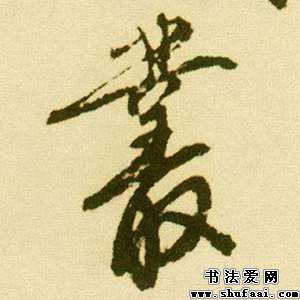 叢
书法爱网
www.shufaai.com